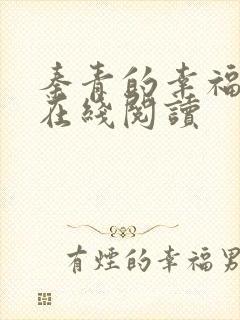 秦青的幸福
在綫閱讀
有煙的幸福男